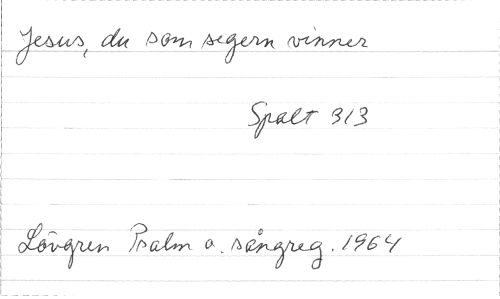 Jesus, du som segern vinner
Spalt 313
Lövgren Psalm o. sångreg. 1964